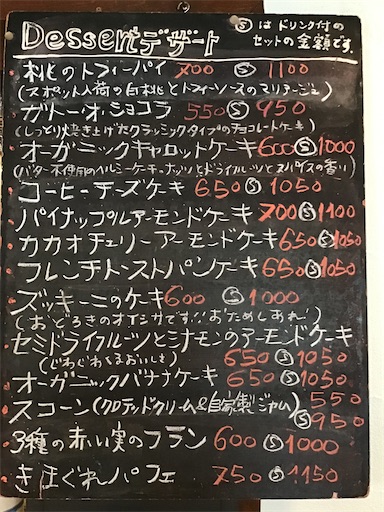 Dessertデザート
Ⓢはドリンク付の
セットの金額です。
桃のトフィーパイ 700 Ⓢ 1100
(スポット入荷の白桃とトフィーソースのマリアージュ)
ガトー・オ・ショコラ 550 Ⓢ 950
(しっとり焼き上げたクラッシックタイプのチョコレートケーキ)
オーガニックキャロットケーキ 600 Ⓢ 1000
(バター不使用のヘルシーケーキ ナッツとドライフルーツとスパイスの香い)
コーヒーチーズケーキ 650 Ⓢ 1050
パイナップルアーモンドケーキ 700 Ⓢ 1100
カカオチェリーアーモンドケーキ 650 Ⓢ 1050
フレンチトーストパンケーキ 650 Ⓢ 1050
ズッキーニのケーキ 600 Ⓢ 1000
(おどろきのオイシサです!!おためしあれ!)
セミドライフルーツとシナモンのアーモンドケーキ
(じわじわくるおいしさ) 650 Ⓢ 1050
オーガニックバナナケーキ 650 Ⓢ 1050
スコーン(クロテッドクリーム&自家製ジャム) 550
Ⓢ 950
3種の赤い実のフラン 600 Ⓢ 1000
きまぐれパフェ 750 Ⓢ 1150